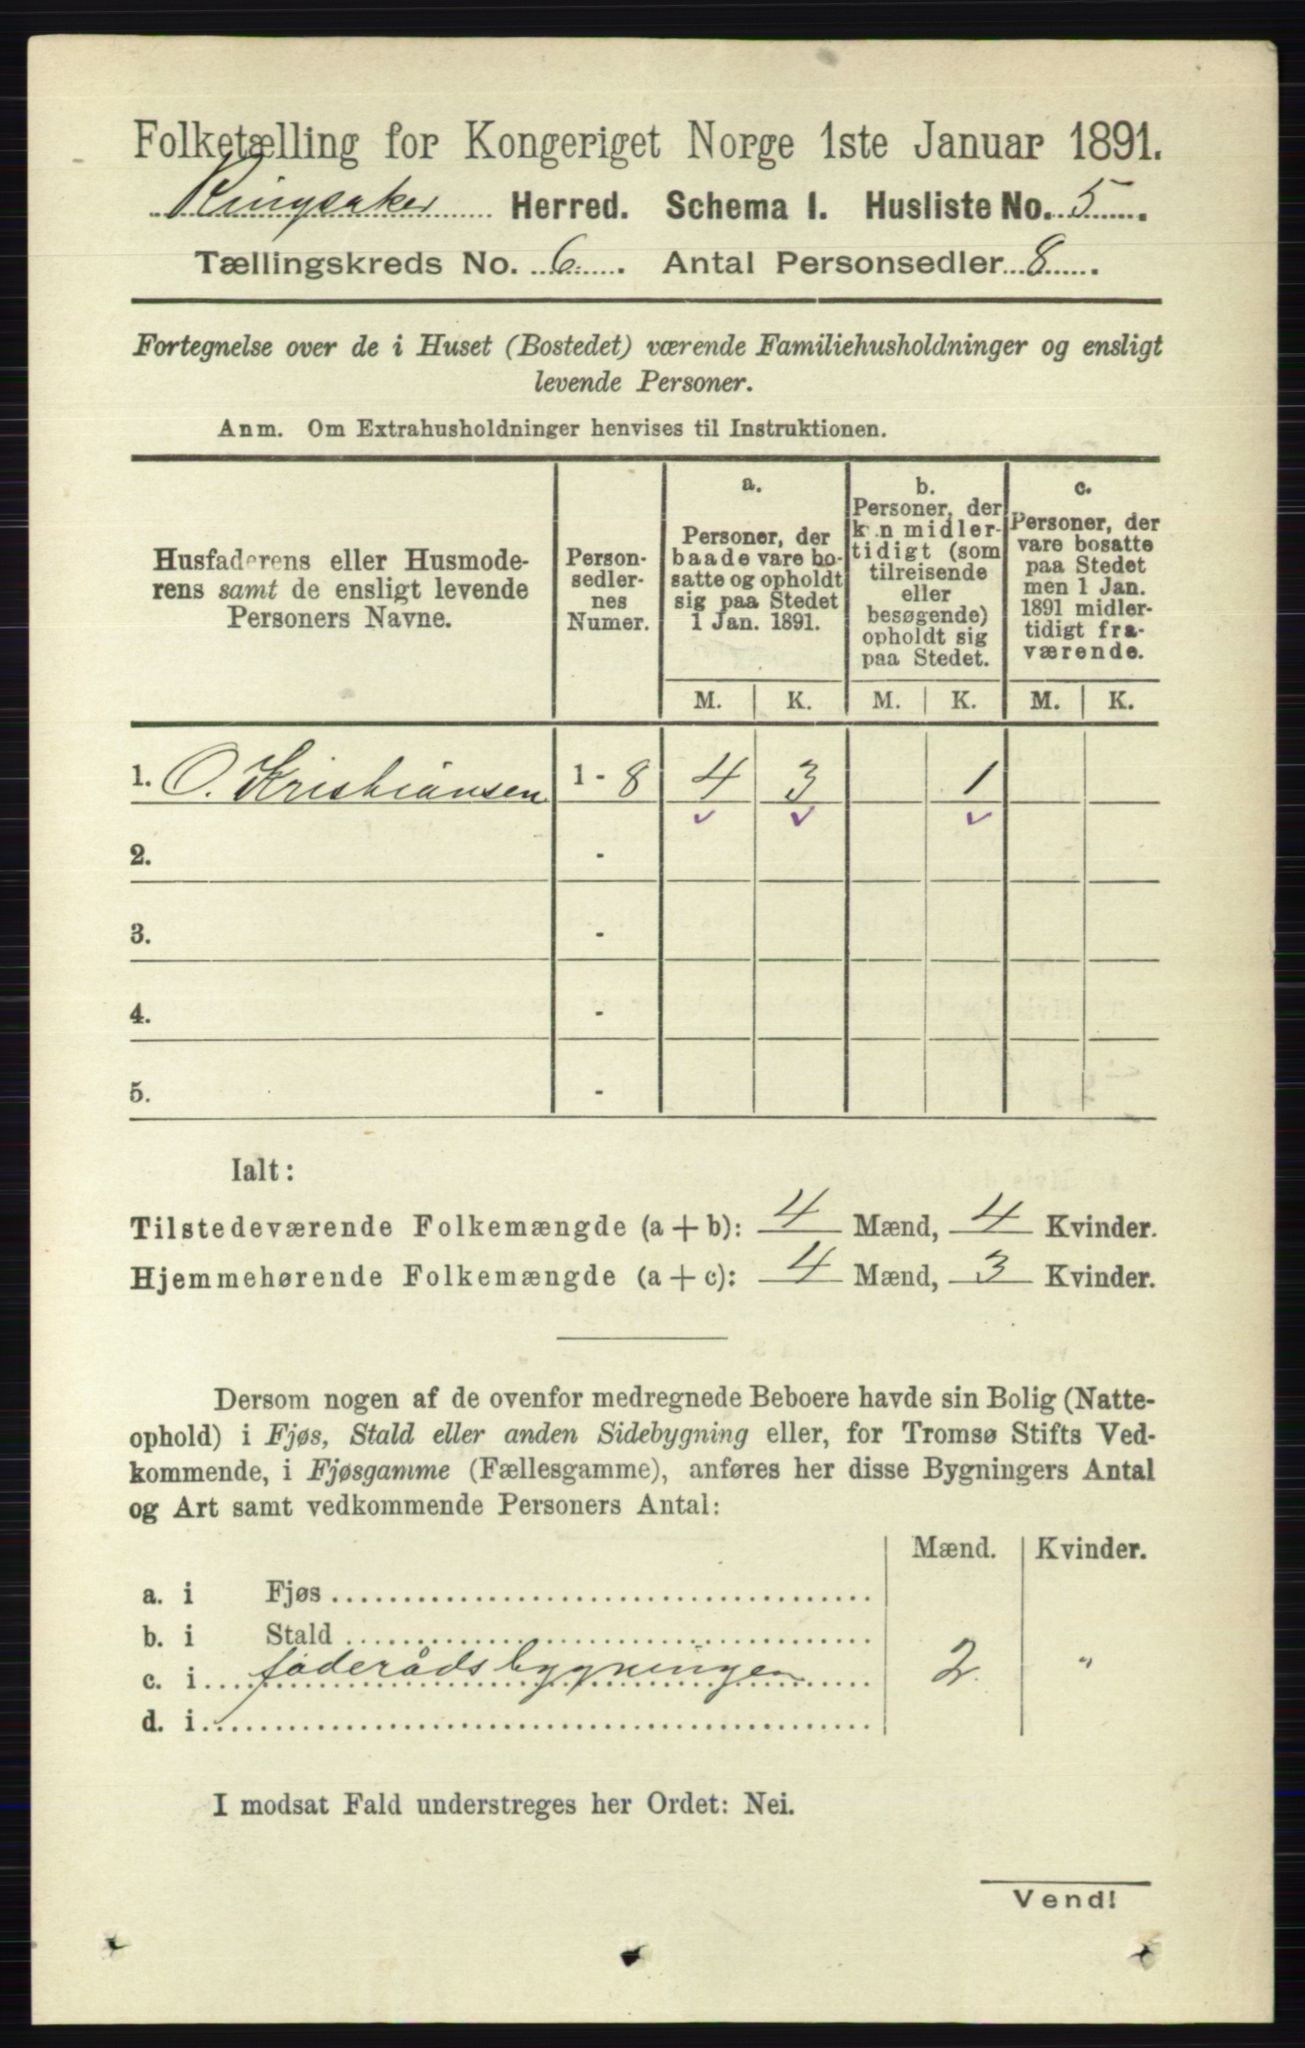 Folketælling for Kongeriget Norge 1ste Januar 1891.
Ringsaker Herred. Schema I. Husliste No. 5
Tællingskreds No. 6. Antal Personsedler 8
Fortegnelse over de i Huset (Bostedet) værende Familiehusholdninger og ensligt
levende Personer.
Anm. Om Extrahusholdninger henvises til Instruktionen.
Husfaderens eller Husmode-
rens samt de ensligt levende
Personers Navne.
Person-
sedler-
nes
Numer.
a.
Personer, der
baade vare bo-
satte og opholdt
sig paa Stedet
1 Jan. 1891.
b.
Personer, der
kun midler-
tidigt (som
tilreisende
eller
besøgende)
opholdt sig
paa Stedet.
c.
Personer, der
vare bosatte
paa Stedet
men 1 Jan.
1891 midler-
tidigt fra-
værende.
M. K. M. K. M. K.
1. O. Kristiansen 1 - 8 4 3 1
2. -
3. -
4. -
5. -
Ialt:
Tilstedeværende Folkemængde (a + b): 4 Mænd, 4 Kvinder.
Hjemmehørende Folkemængde (a + c): 4 Mænd, 3 Kvinder.
Dersom nogen af de ovenfor medregnede Beboere havde sin Bolig (Natte-
ophold) i Fjøs, Stald eller anden Sidebygning eller, for Tromsø Stifts Ved-
kommende, i Fjøsgamme (Fællesgamme), anføres her disse Bygningers Antal
og Art samt vedkommende Personers Antal:
Mænd. Kvinder.
a. i Fjøs
b. i Stald
c. i føderådsbygningen 2 "
d. i
I modsat Fald understreges her Ordet: Nei.
Vend!